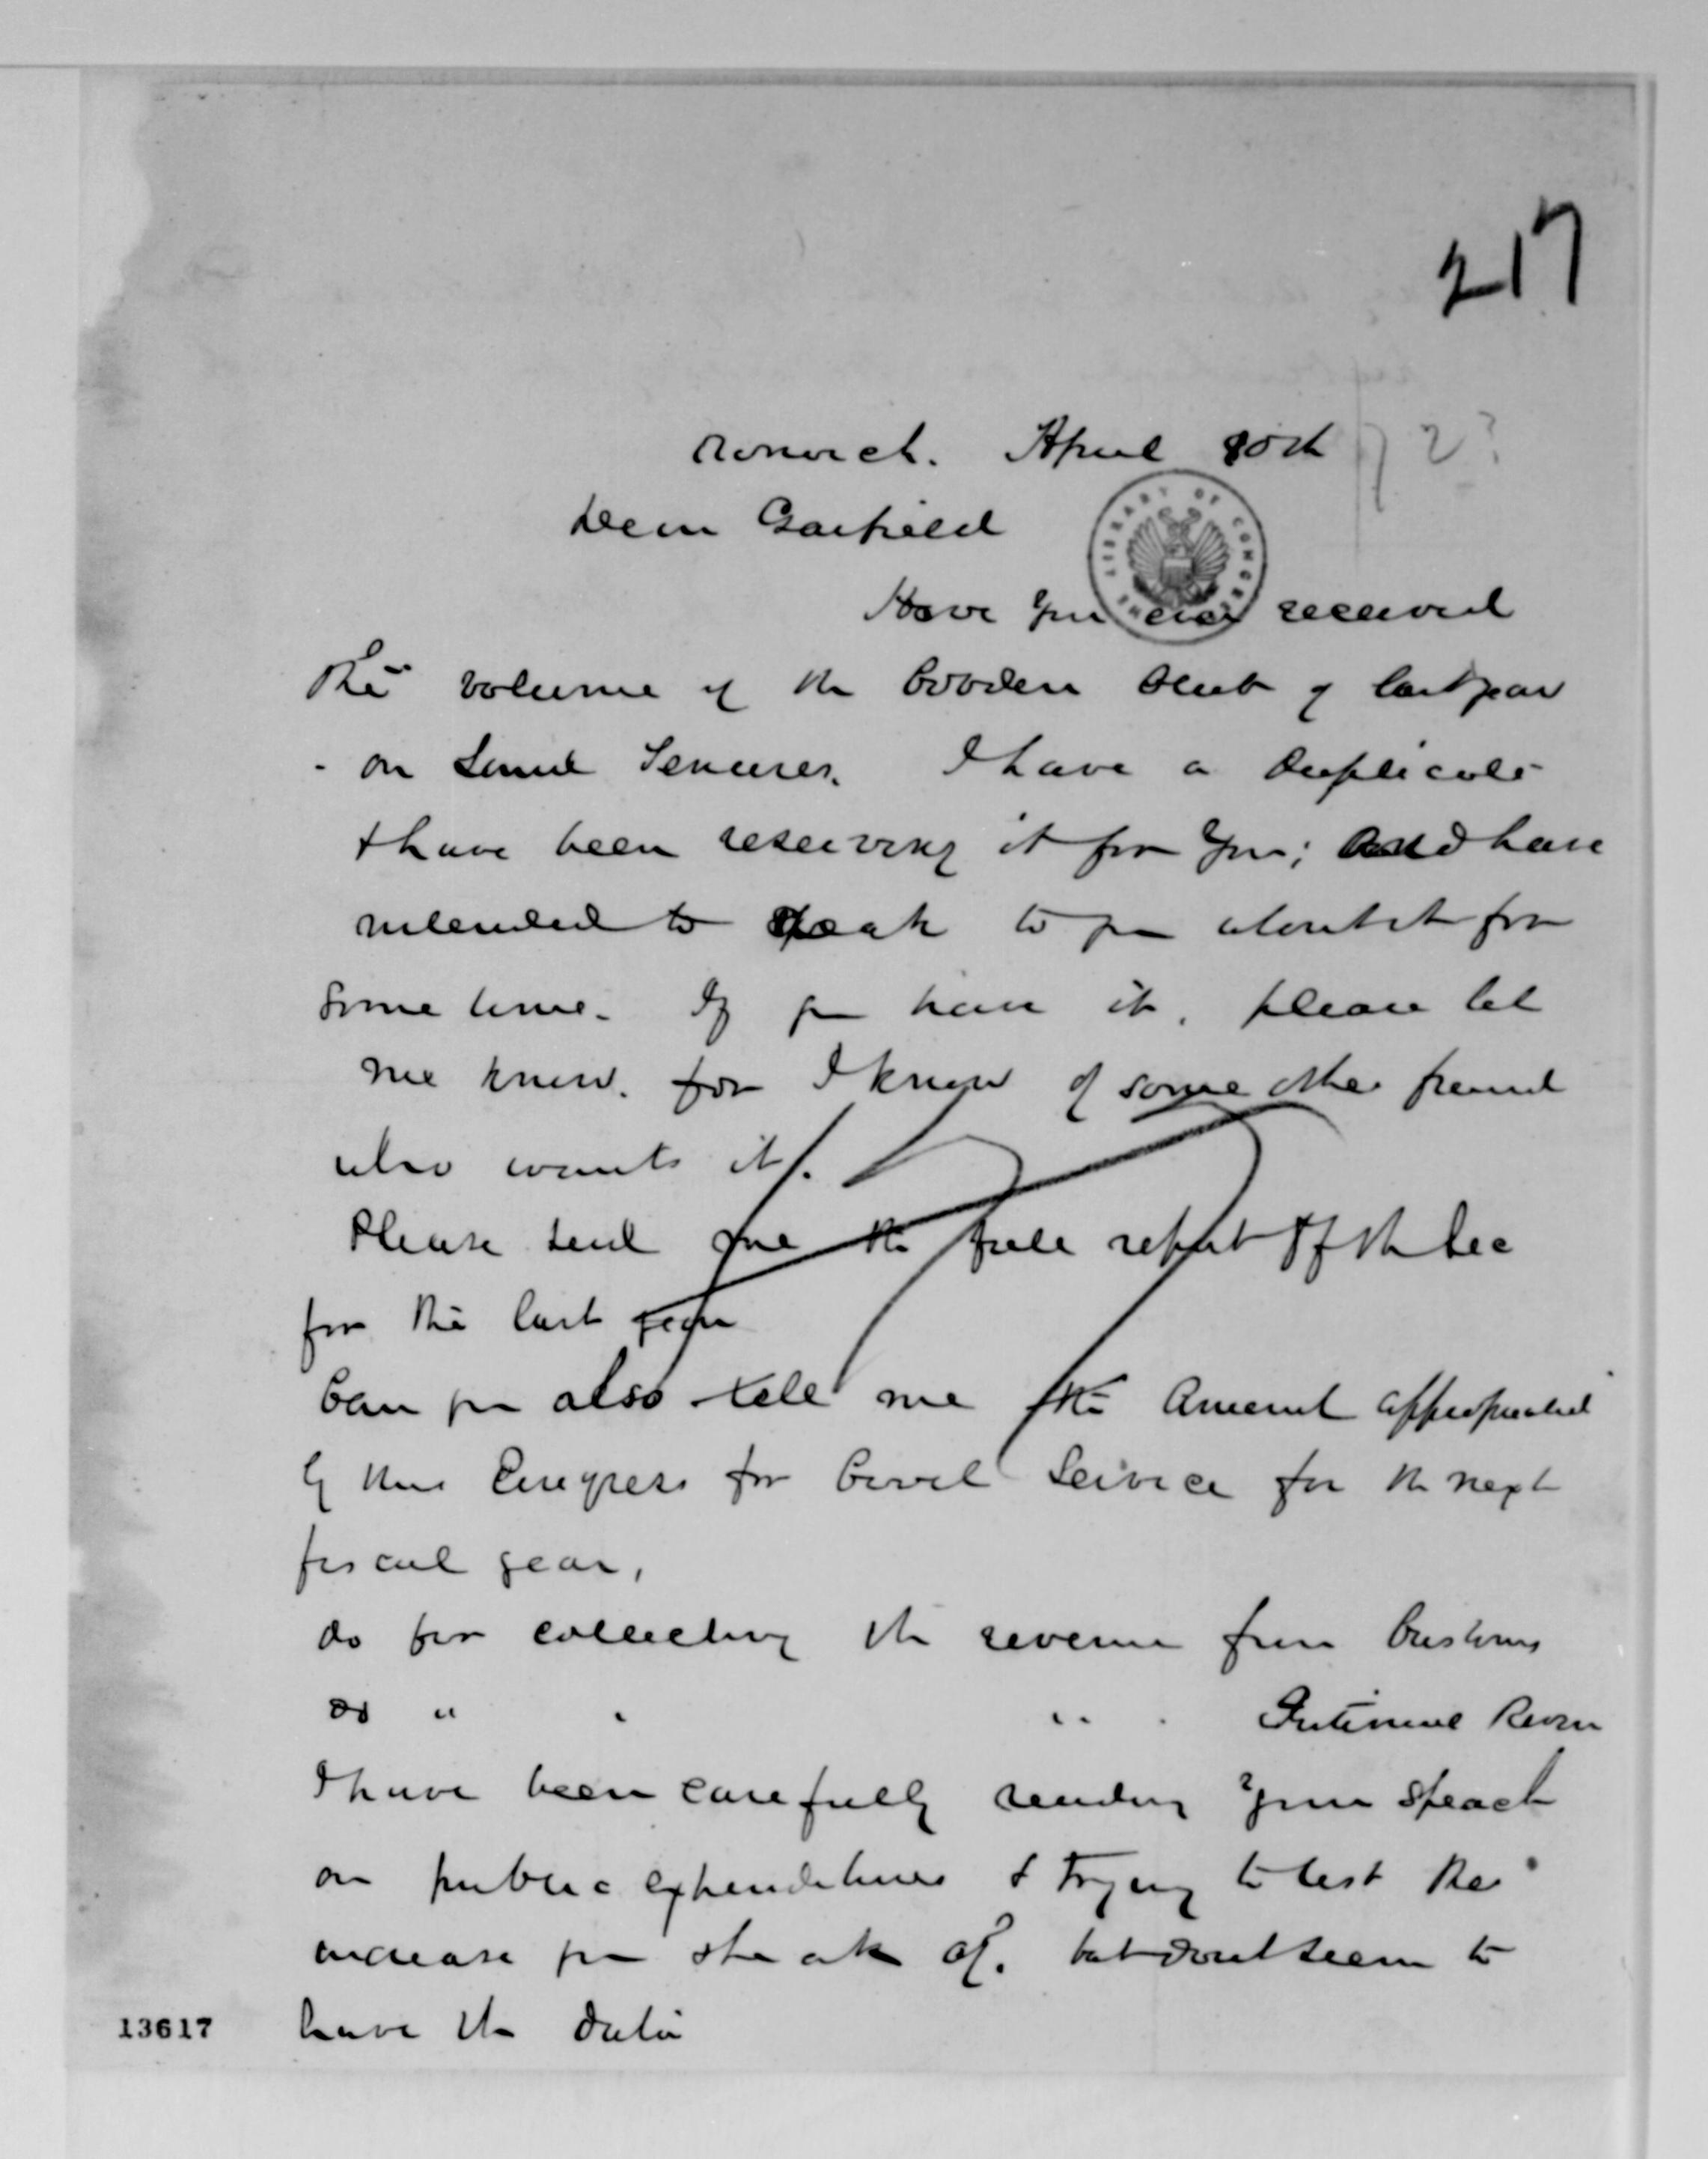 217
Norwich. April 30th 72?
Dear Garfield
Have you ever received
The volume of the Cobden Club of last year
- on Land Tenures. I have a duplicate
& have been reserving it for you; And have
intended to speak to you about it for
some time. If you have it, please let
me know. for I know of some other friend
who wants it.
Please send me the full report of the Sec
for the last year
Can you also tell me the Amount appropriated
by this Congress for Civil Service for the next
fiscal year,
do for collecting the revenue from Customs
do " " " " Internal Reven
I have been carefully reading your speech
on public expenditures & trying to test the
increase you speak of. but dont seem to
have the data
13617
THE LIBRARY OF CONGRESS